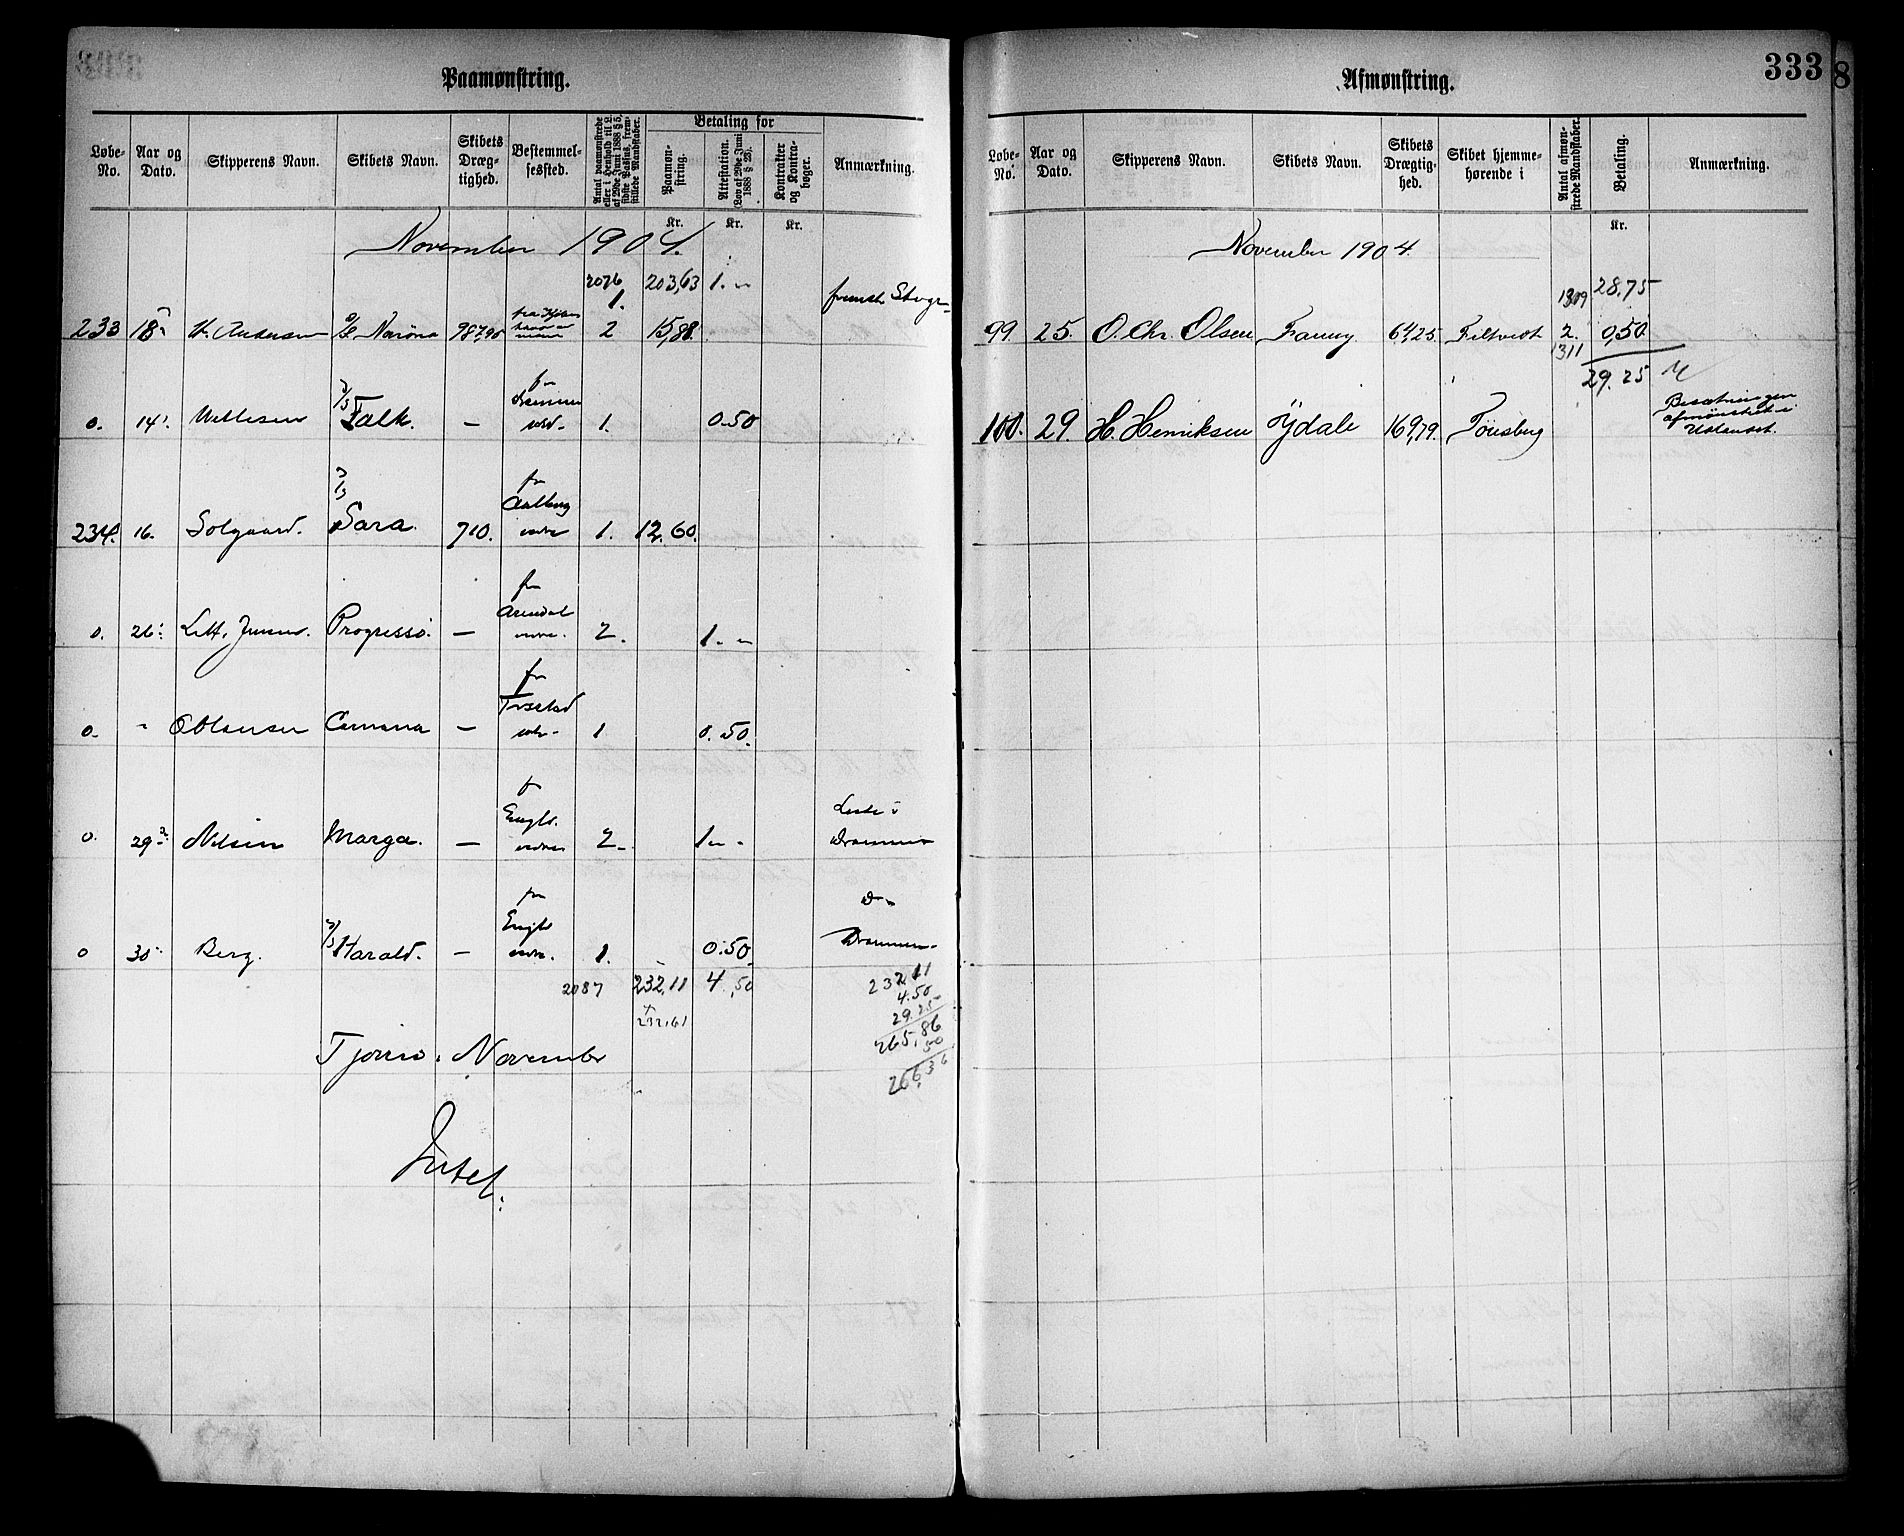 Paamønstring.
Løbe-No. | Aar og Dato. | Skipperens Navn. | Skibets Navn. | Skibets Dræg-tighed. | Bestemmel-sessted. | Antal paamønstrede eller i Henhold til L. af 29de Juni 1888 § 5, sidste Passus, frem-stillede Mandskaber. | Betaling for | Anmærkning.
Paamøn-string. | Attestation. (Lov af 29de Juni 1888 § 23). | Kontrakter og Kontra-bøger.
Kr. | Kr. | Kr.
November 1904.
2076 | 203,63 | 1.-
1.
233 | 18 | Andersen | Norøna | 2 | 15,88.
0. | 14 | Falk. | — | fra Drammen | 1. | 0.50
234. | 16. | Solgaard. | Sara. | 710. | fra Aalborg | 1. | 12.60.
0. | 26 | Progresso. | — | fra Arendal | 2. | 1.-
0. | " | Carmona | — | 1 | 0.50.
0. | 29 | Nilsen | Marga. | — | fra Engld. | 2. | 1.- | Liste i Drammen
0 | 30 | Berg. | Harald. | — | fra Engld | 1. | 0.50 | Do Drammen.
2087 | 232,11 | 4,50
232,61
232,11
4.50
29.25
265,86
50
266,36
Tjømø. November
Intet.
333
Afmønstring.
Løbe-No. | Aar og Dato. | Skipperens Navn. | Skibets Navn. | Skibets Drægtig-hed. | Skibet hjemme-hørende i | Antal afmøn-strede Mandskaber. | Betaling. | Anmærkning.
Kr.
November 1904.
1309 | 28,75
99. | 25. | O. Chr. Olsen | Fanny. | 64,25. | Filtvedt | 2. | 0,50
1311
29.25
100. | 29. | H. Henriksen | Ydale | 169,79. | Tønsberg | Besætningen afmønstret i Udlandet.